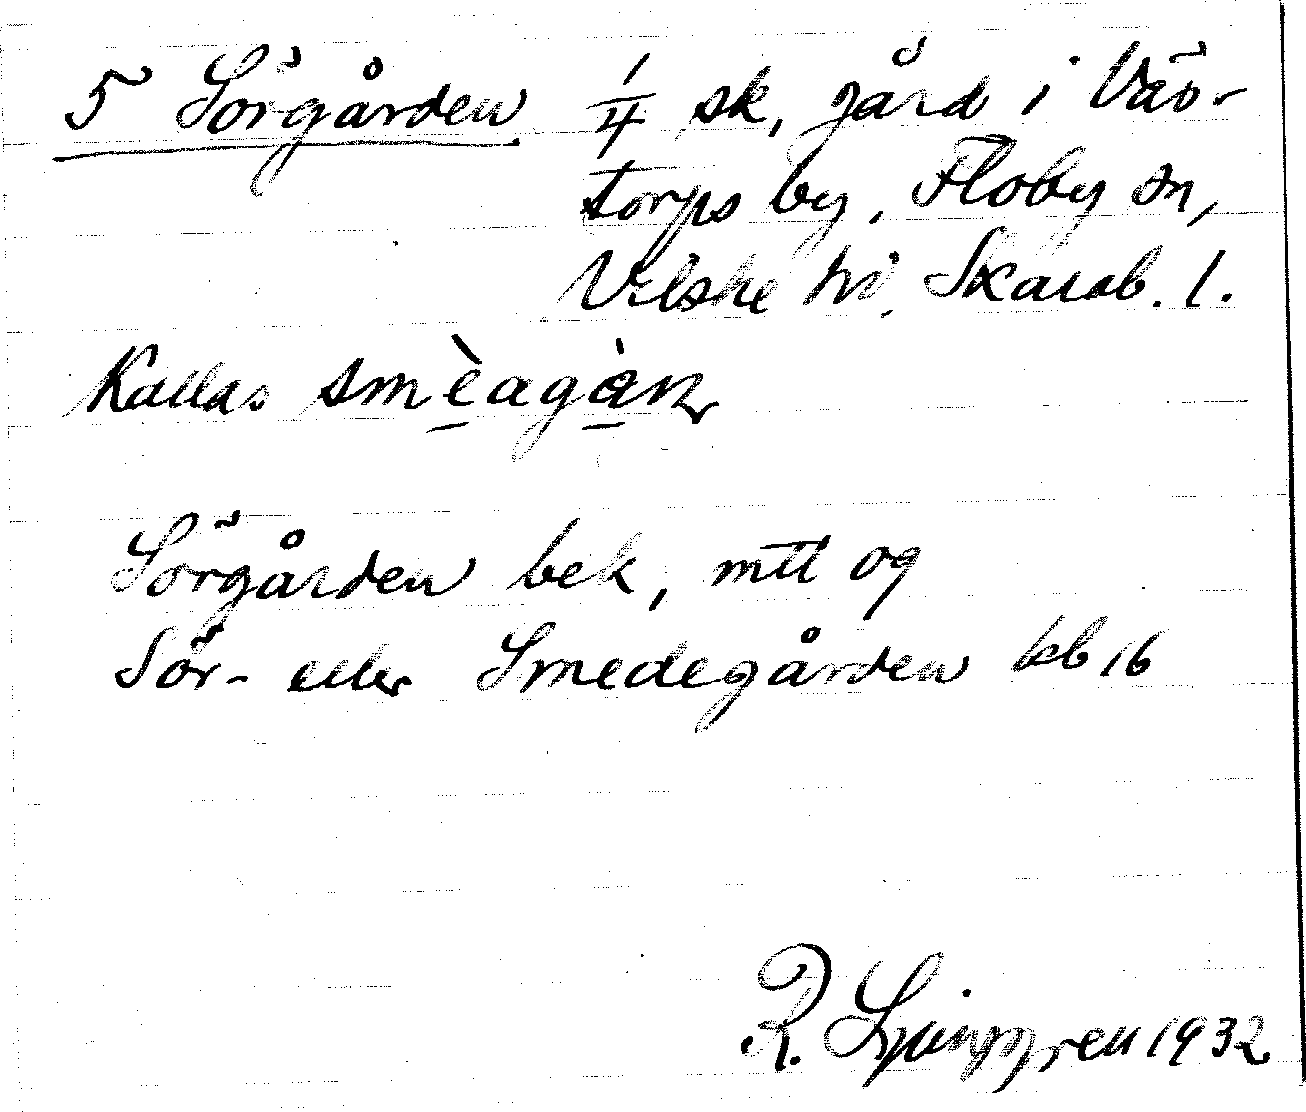 5 Sörgården 1/4 sk, gård i Väs-
torps by, Floby sn,
Vilske hd. Skarab. l.
Kallas smèagàṇ
Sörgården bek, mtl og
Sör- eller Smedegården kb 16
R. Ljunggren 1932